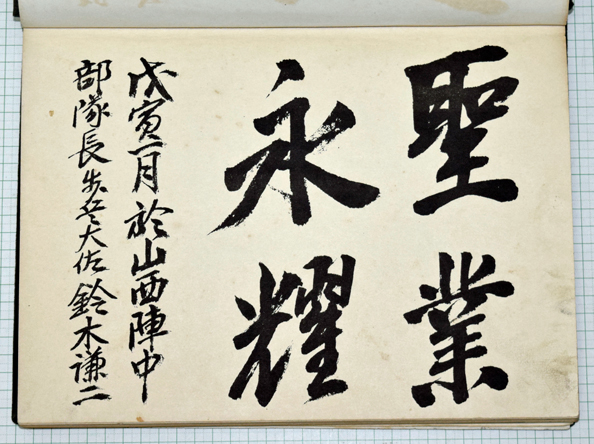 聖業
永耀
戊寅一月於山西陣中
部隊長歩兵大佐鈴木謙二